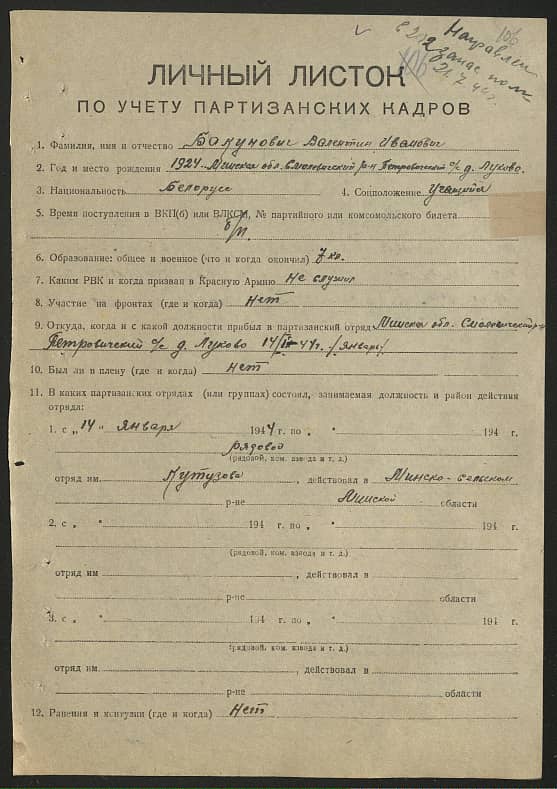 106
Направлен
в 212 запас полк
21.7.44г.
106
ЛИЧНЫЙ ЛИСТОК
ПО УЧЕТУ ПАРТИЗАНСКИХ КАДРОВ
1. Фамилия, имя и отчество Валентин Иванович
2. Год и место рождения 1927. Минская обл. Смолевичский р-н Петровичский с/с д. Луково.
3. Национальность Белорусс 4. Соцположение Учащийся
5. Время поступления в ВКП(б) или ВЛКСМ, № партийного или комсомольского билета
б/п.
6. Образование: общее и военное (что и когда окончил) 7 кл.
7. Каким РВК и когда призван в Красную Армию не служил
8. Участие на фронтах (где и когда) нет
9. Откуда, когда и с какой должности прибыл в партизанский отряд Минская обл. Смолевичский р-н
Петровичский с/с д. Луково 14/I-44г. /январь/
10. Был ли в плену (где и когда) нет
11. В каких партизанских отрядах (или группах) состоял, занимаемая должность и район действия
отряда:
1. с „14" января 1944 г. по „ " 194 г.
рядовой
(рядовой, ком. взвода и т. д.)
отряд им. Кутузова, действовал в Минско-сельском
р-не Минской области
2. с „ " 194 г. по „ " 194 г.
(рядовой, ком. взвода и т. д.)
отряд им , действовал в
р-не области
3. с „ " 194 г. по „ " 194 г.
(рядовой, ком. взвода и т. д.)
отряд им. , действовал в
р-не области
12. Ранения и контузии (где и когда) Нет